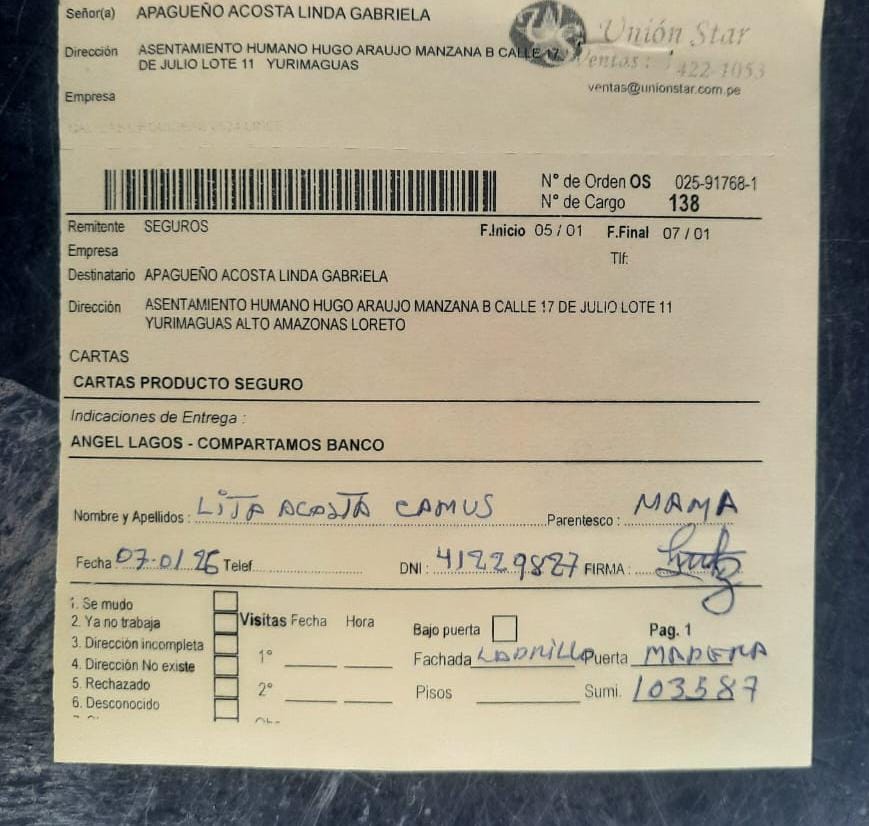 Señor(a) APAGUEÑO ACOSTA LINDA GABRIELA
Unión Star
Dirección ASENTAMIENTO HUMANO HUGO ARAUJO MANZANA B CALLE 17
DE JULIO LOTE 11 YURIMAGUAS
Ventas: 422-1053
ventas@unionstar.com.pe
Empresa
N° de Orden OS 025-91768-1
N° de Cargo 138
Remitente SEGUROS F.Inicio 05 / 01 F.Final 07 / 01
Empresa Tlf:
Destinatario APAGUEÑO ACOSTA LINDA GABRIELA
Dirección ASENTAMIENTO HUMANO HUGO ARAUJO MANZANA B CALLE 17 DE JULIO LOTE 11
YURIMAGUAS ALTO AMAZONAS LORETO
CARTAS
CARTAS PRODUCTO SEGURO
Indicaciones de Entrega :
ANGEL LAGOS - COMPARTAMOS BANCO
Nombre y Apellidos : LITA ACOSTA CAMUS Parentesco : MAMA
Fecha 07-01-26 Telef. DNI : 41229827 FIRMA :
1. Se mudo
2. Ya no trabaja
3. Dirección incompleta
4. Dirección No existe
5. Rechazado
6. Desconocido
Visitas Fecha Hora
1°
2°
Bajo puerta Pag. 1
Fachada LADRILLO Puerta MADERA
Pisos Sumi. 103587